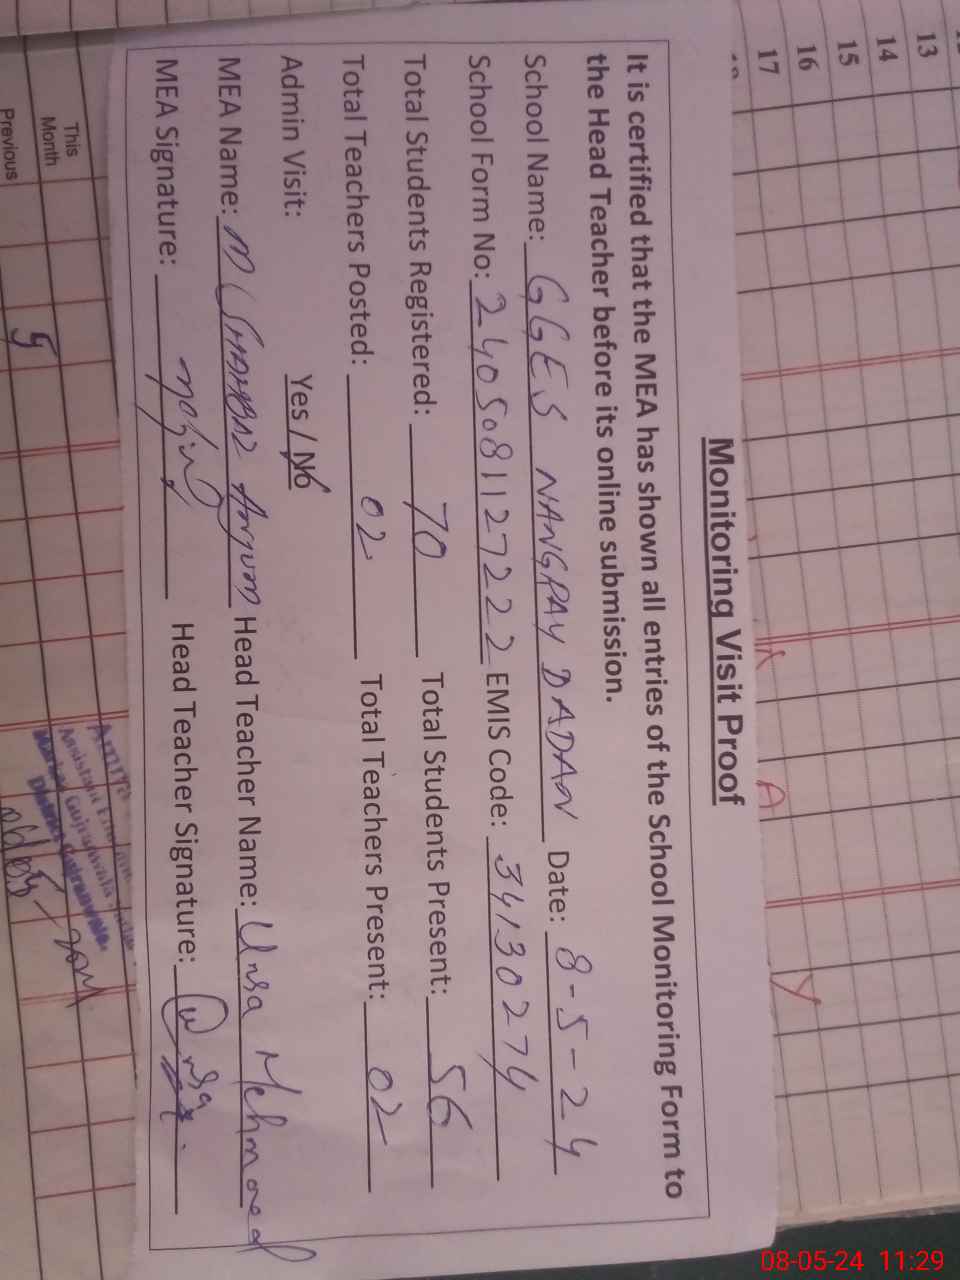 13
14
15
16
17
Monitoring Visit Proof
It is certified that the MEA has shown all entries of the School Monitoring Form to
the Head Teacher before its online submission.
School Name: GGES NANGRAY DADAN Date: 8-5-24
School Form No: 2405081127222 EMIS Code: 34130274
Total Students Registered: 70 Total Students Present: 56
Total Teachers Posted: 02 Total Teachers Present: 02
Admin Visit: Yes / No
MEA Name: M Anjum Head Teacher Name: Unsa Mehmood
MEA Signature: Head Teacher Signature: Unsa
This
Month
Previous
A
Y
08-05-24 11:29